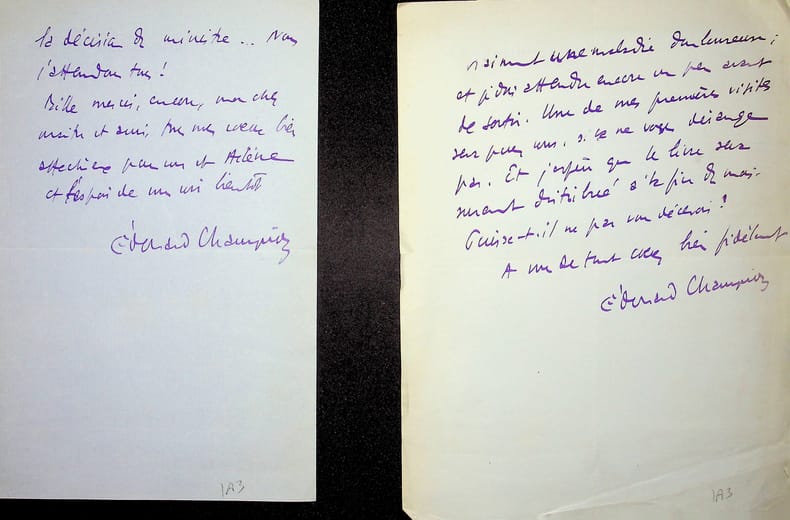 la décision du ministre... Nous
l'attendons tous!
Mille mercis, encore, mon cher
maître et ami, tous mes vœux bien
affectueux pour vous et Hélène
et l'espoir de vous voir bientôt
Édouard Champion
1A3
vraiment une maladie douloureuse;
et je dois attendre encore un peu avant
de sortir. Une de mes premières visites
sera pour vous, si ça ne vous dérange
pas. Et j'espère que le livre sera
sûrement distribué à la fin du mois.
Puisse-t-il ne pas vous décevoir!
A vous de tout cœur bien fidèlement
Édouard Champion
1A3